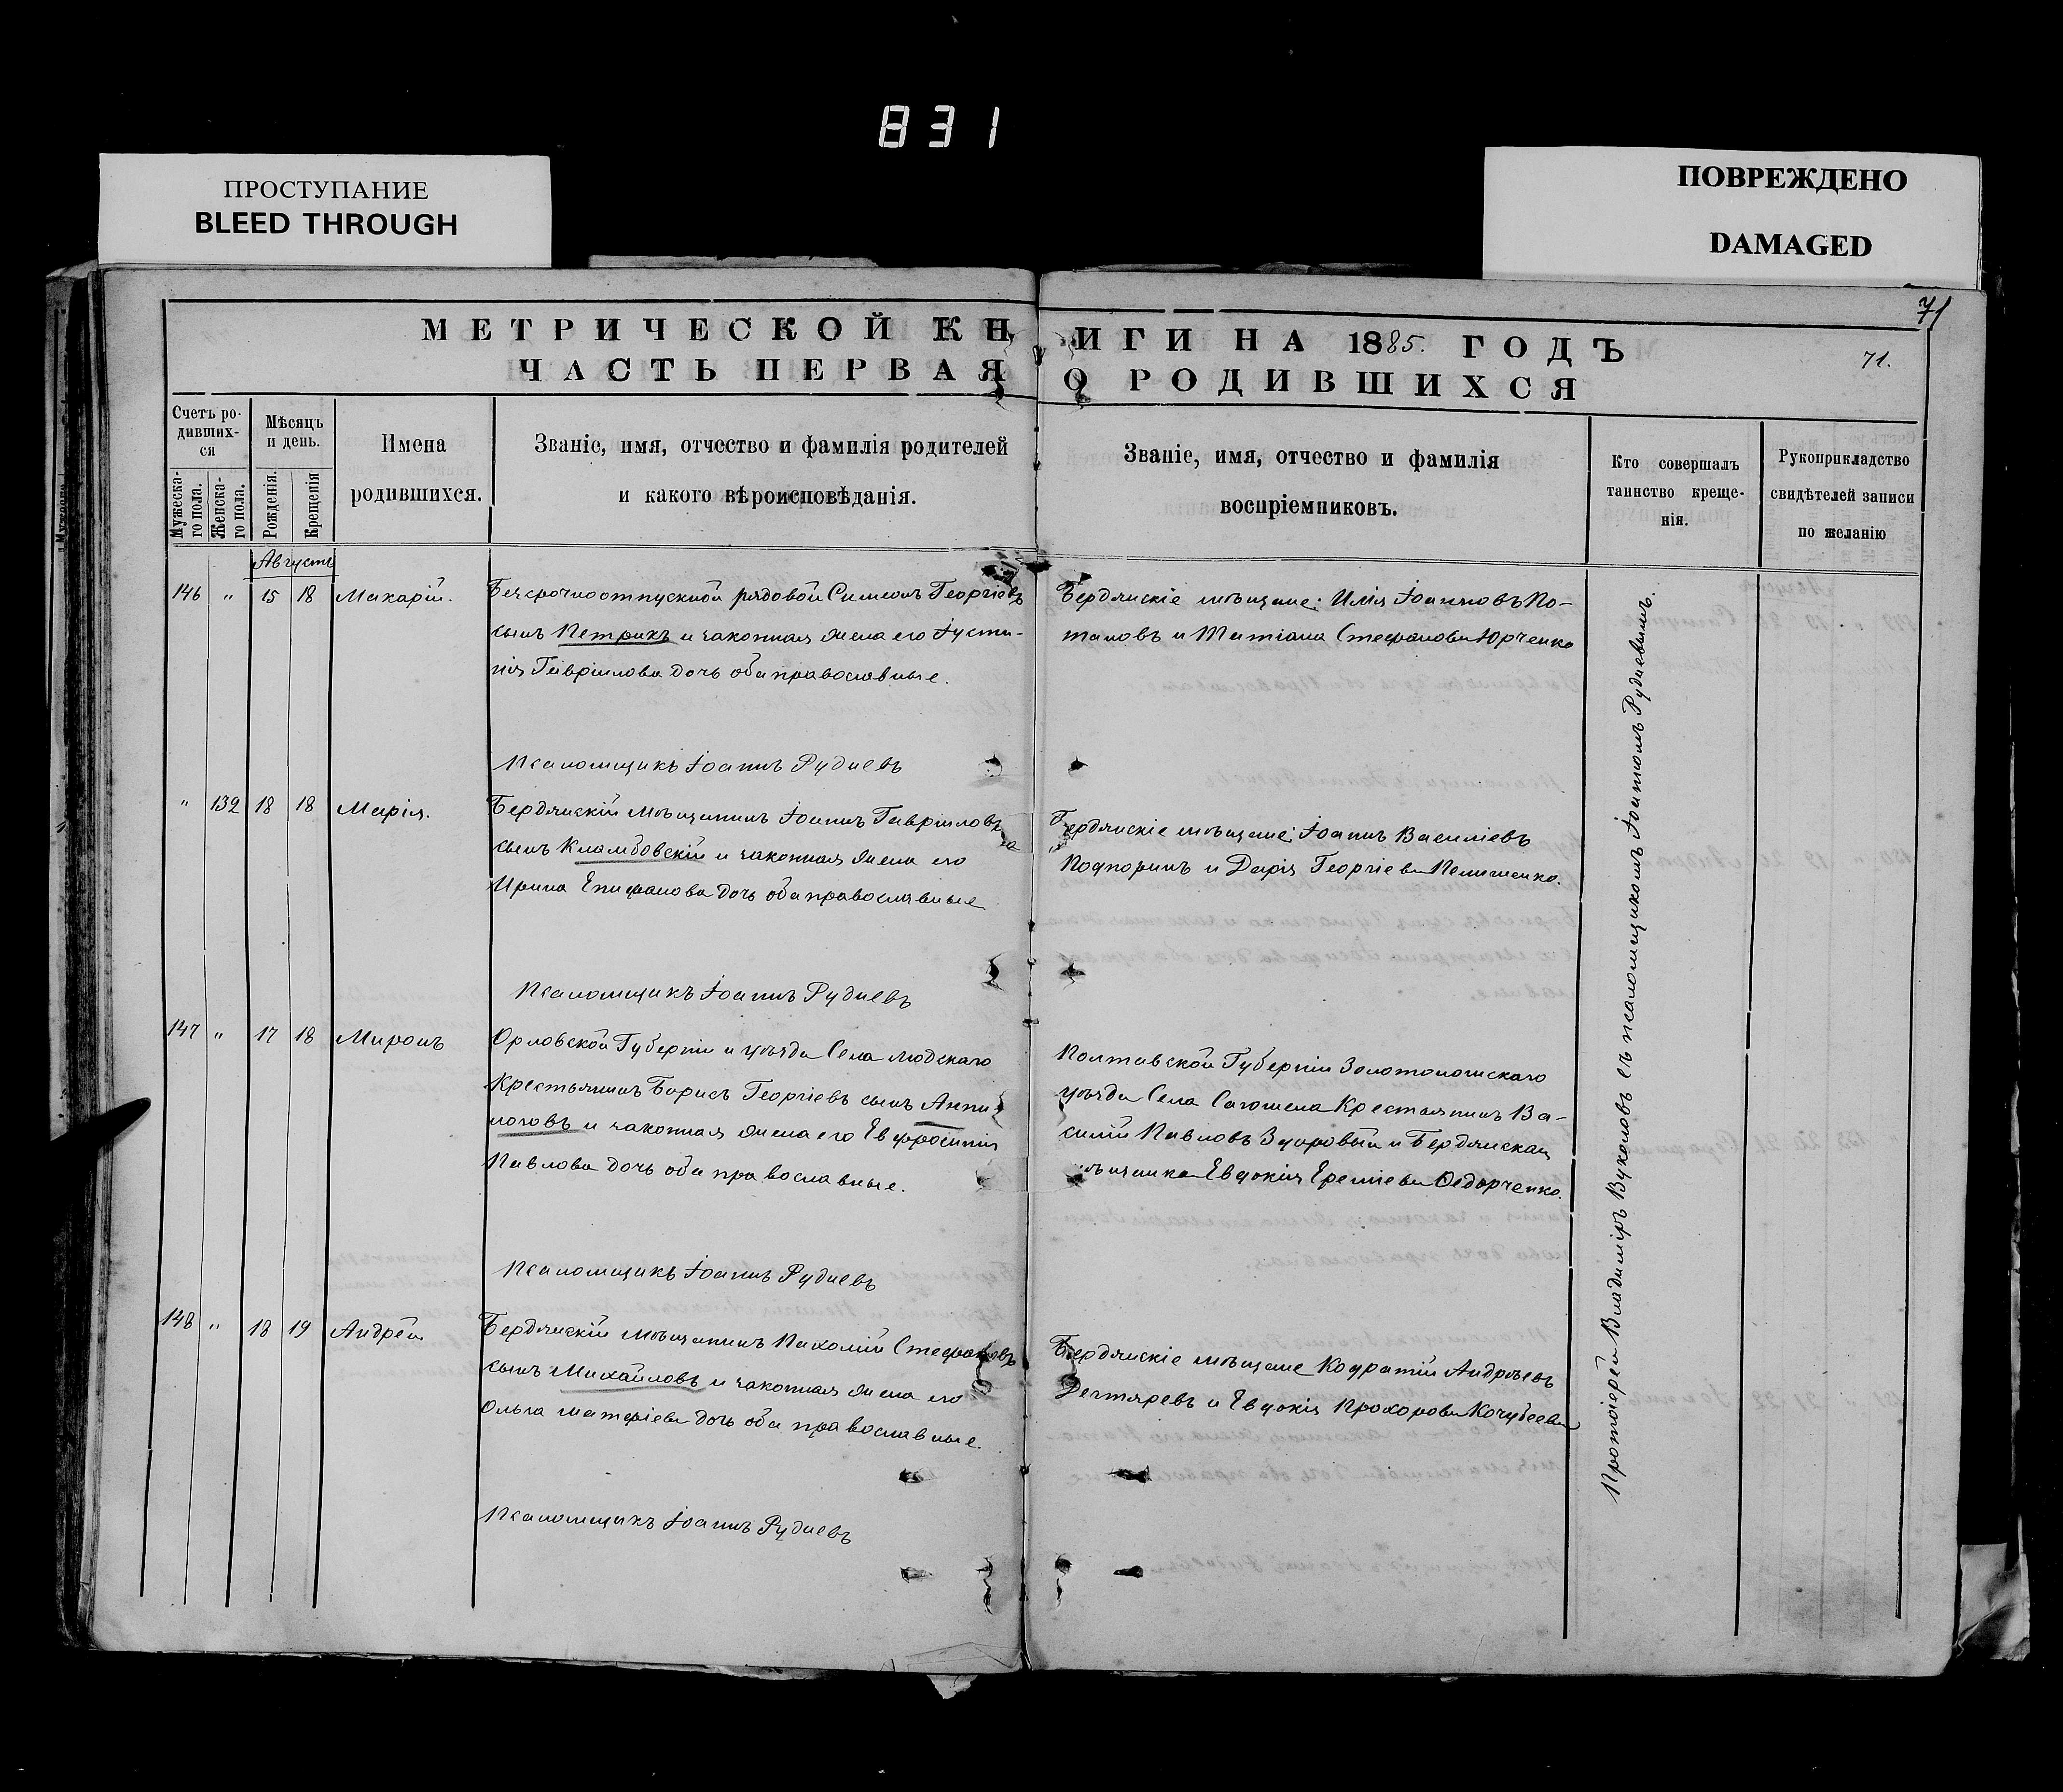 831
ПРОСТУПАНИЕ
BLEED THROUGH
ПОВРЕЖДЕНО
DAMAGED
71
МЕТРИЧЕСКОЙ КНИГИ НА 1885. ГОДЪ
71.
ЧАСТЬ ПЕРВАЯ О РОДИВШИХСЯ
Счетъ ро-
дивших-
ся
Мужеска-
го пола.
Женска-
го пола.
Мѣсяцъ
и день.
Рожденія.
Крещенія
Имена
родившихся.
Званіе, имя, отчество и фамилія родителей
и какого вѣроисповѣданія.
Званіе, имя, отчество и фамилія
воспріемниковъ.
Кто совершалъ
таинство креще-
нія.
Рукоприкладство
свидѣтелей записи
по желанію
Августъ
146 " 15 18 Макарій.
Безсрочноотпускной рядовой Симеонъ Георгіевъ
сынъ Петрикъ и законная жена его Іусти-
нія Гавріилова дочь оба православные.
Бердянскіе мѣщане: Илія Іоанновъ По-
таповъ и Татіана Стефанова Юрченко
Псаломщикъ Іоаннъ Рудневъ
" 132 18 18 Марія.
Бердянскій мѣщанинъ Іоаннъ Гавріиловъ
сынъ Кламбовскій и законная жена его
Ирина Епифанова дочь оба православные
Бердянскіе мѣщане: Іоаннъ Василіевъ
Подпоринъ и Дарія Георгіева
Псаломщикъ Іоаннъ Рудневъ
147 " 17 18 Миронъ
Орловской Губерніи и уѣзда Села Людскаго
Крестьянинъ Борисъ Георгіевъ сынъ Анпи-
логовъ и законная жена его Евфросинія
Павлова дочь оба православные.
Полтавской Губерніи Золотоношскаго
уѣзда Села Крестьянинъ Ва-
силій Павловъ Здоровый и Бердянская
мѣщанка Евдокія Ереміева Ѳедорченко.
Псаломщикъ Іоаннъ Рудневъ
148 " 18 19 Андрей
Бердянскій мѣщанинъ Пахомій Стефановъ
сынъ Михайловъ и законная жена его
Ольга Матфіева дочь оба православные.
Бердянскіе мѣщане Кодратій Андреевъ
Дегтяревъ и Евдокія Прохорова Кочубеева
Псаломщикъ Іоаннъ Рудневъ
Протоіерей Владиміръ Вуколовъ съ псаломщикомъ Іоанномъ Рудневымъ.